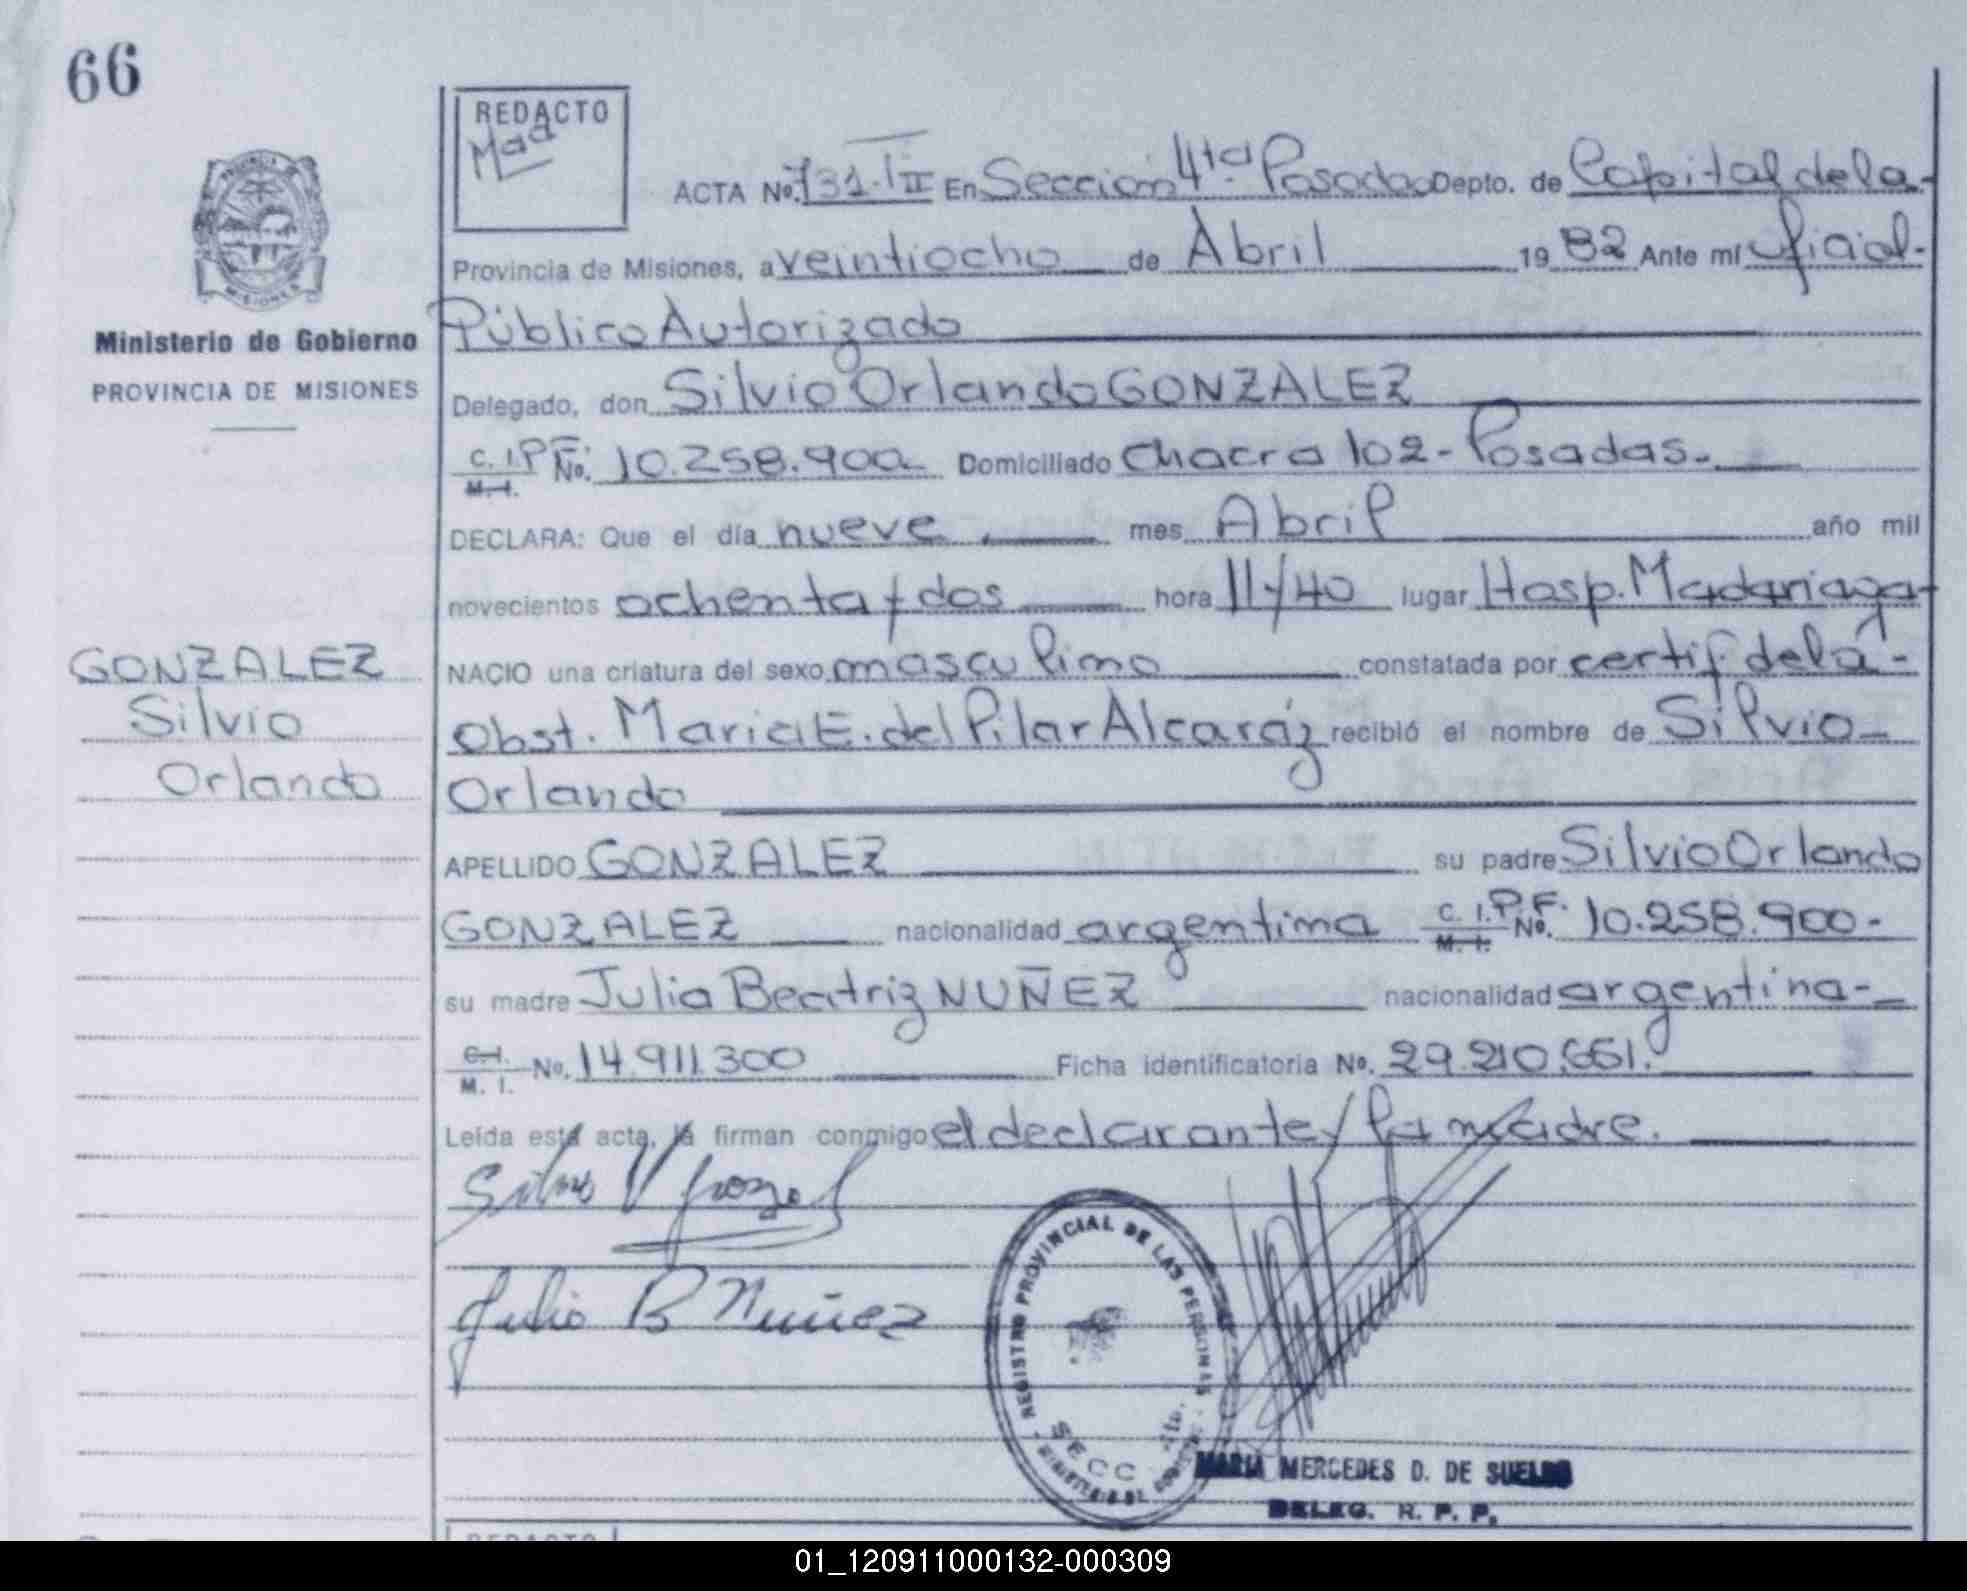 66
REDACTO
Mad
PROVINCIA DE
MISIONES
Ministerio de Gobierno
PROVINCIA DE MISIONES
ACTA No. 731. T II En Sección 4ta. Posadas Depto. de Capital de la-
Provincia de Misiones, a veintiocho de Abril 19 82 Ante mí Oficial-
Público Autorizado
Delegado, don Silvio Orlando GONZALEZ
C. I. P F. No. 10.258.900 Domiciliado Chacra 102- Posadas.-
M. I.
DECLARA: Que el día nueve mes Abril año mil
novecientos ochenta y dos hora 11y40 lugar Hosp. Madariaga-
NACIO una criatura del sexo masculino constatada por certif. de la-
Obst. Maria E. del Pilar Alcaráz recibió el nombre de Silvio-
Orlando
GONZALEZ
Silvio
Orlando
APELLIDO GONZALEZ su padre Silvio Orlando
GONZALEZ nacionalidad argentina C. I. P.F. No. 10.258.900-
M. I.
su madre Julia Beatriz NUÑEZ nacionalidad argentina-
C. I. No. 14.911.300 Ficha identificatoria No. 29.210.661.
M. I.
Leída esta acta, la firman conmigo el declarante y la madre.
Julia B Nuñez
REGISTRO PROVINCIAL DE LAS PERSONAS
SECC 4ta.
MARIA MERCEDES D. DE SUELDO
DELEG. R. P. P.
REDACTO
01_120911000132-000309